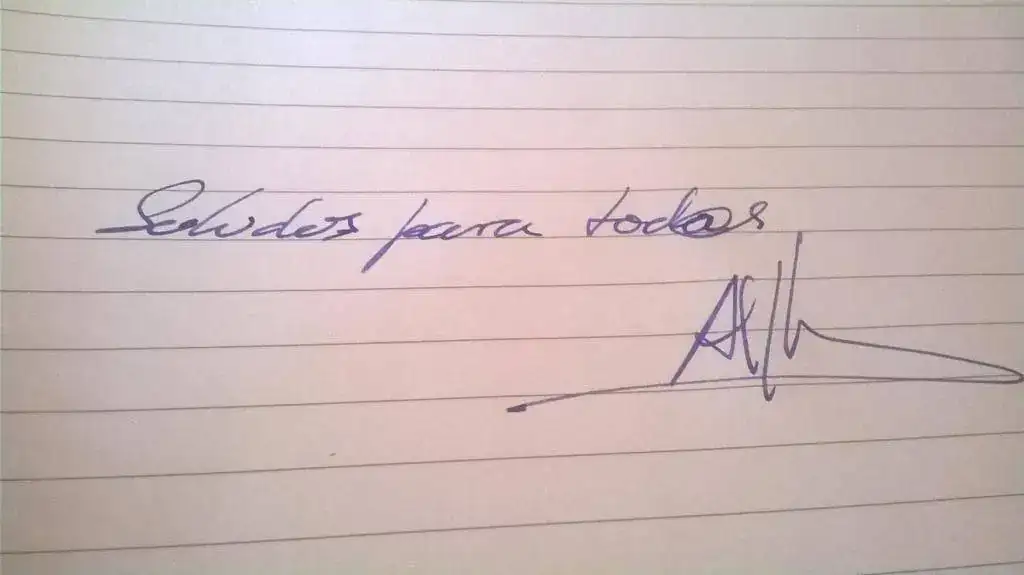 Saludos para todos